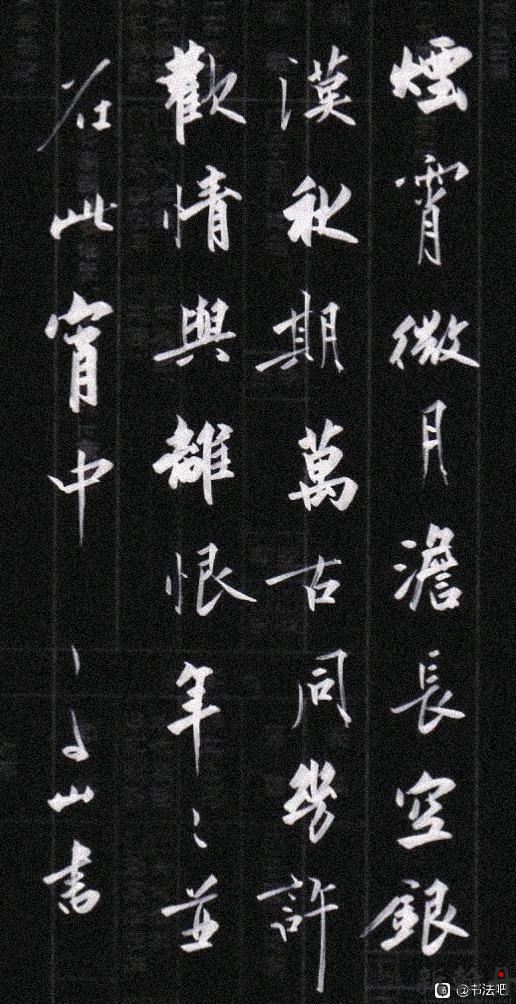 煙霄微月澹長空銀
漢秋期萬古同幾許
歡情與離恨年〻並
在此宵中 山書
@书法吧